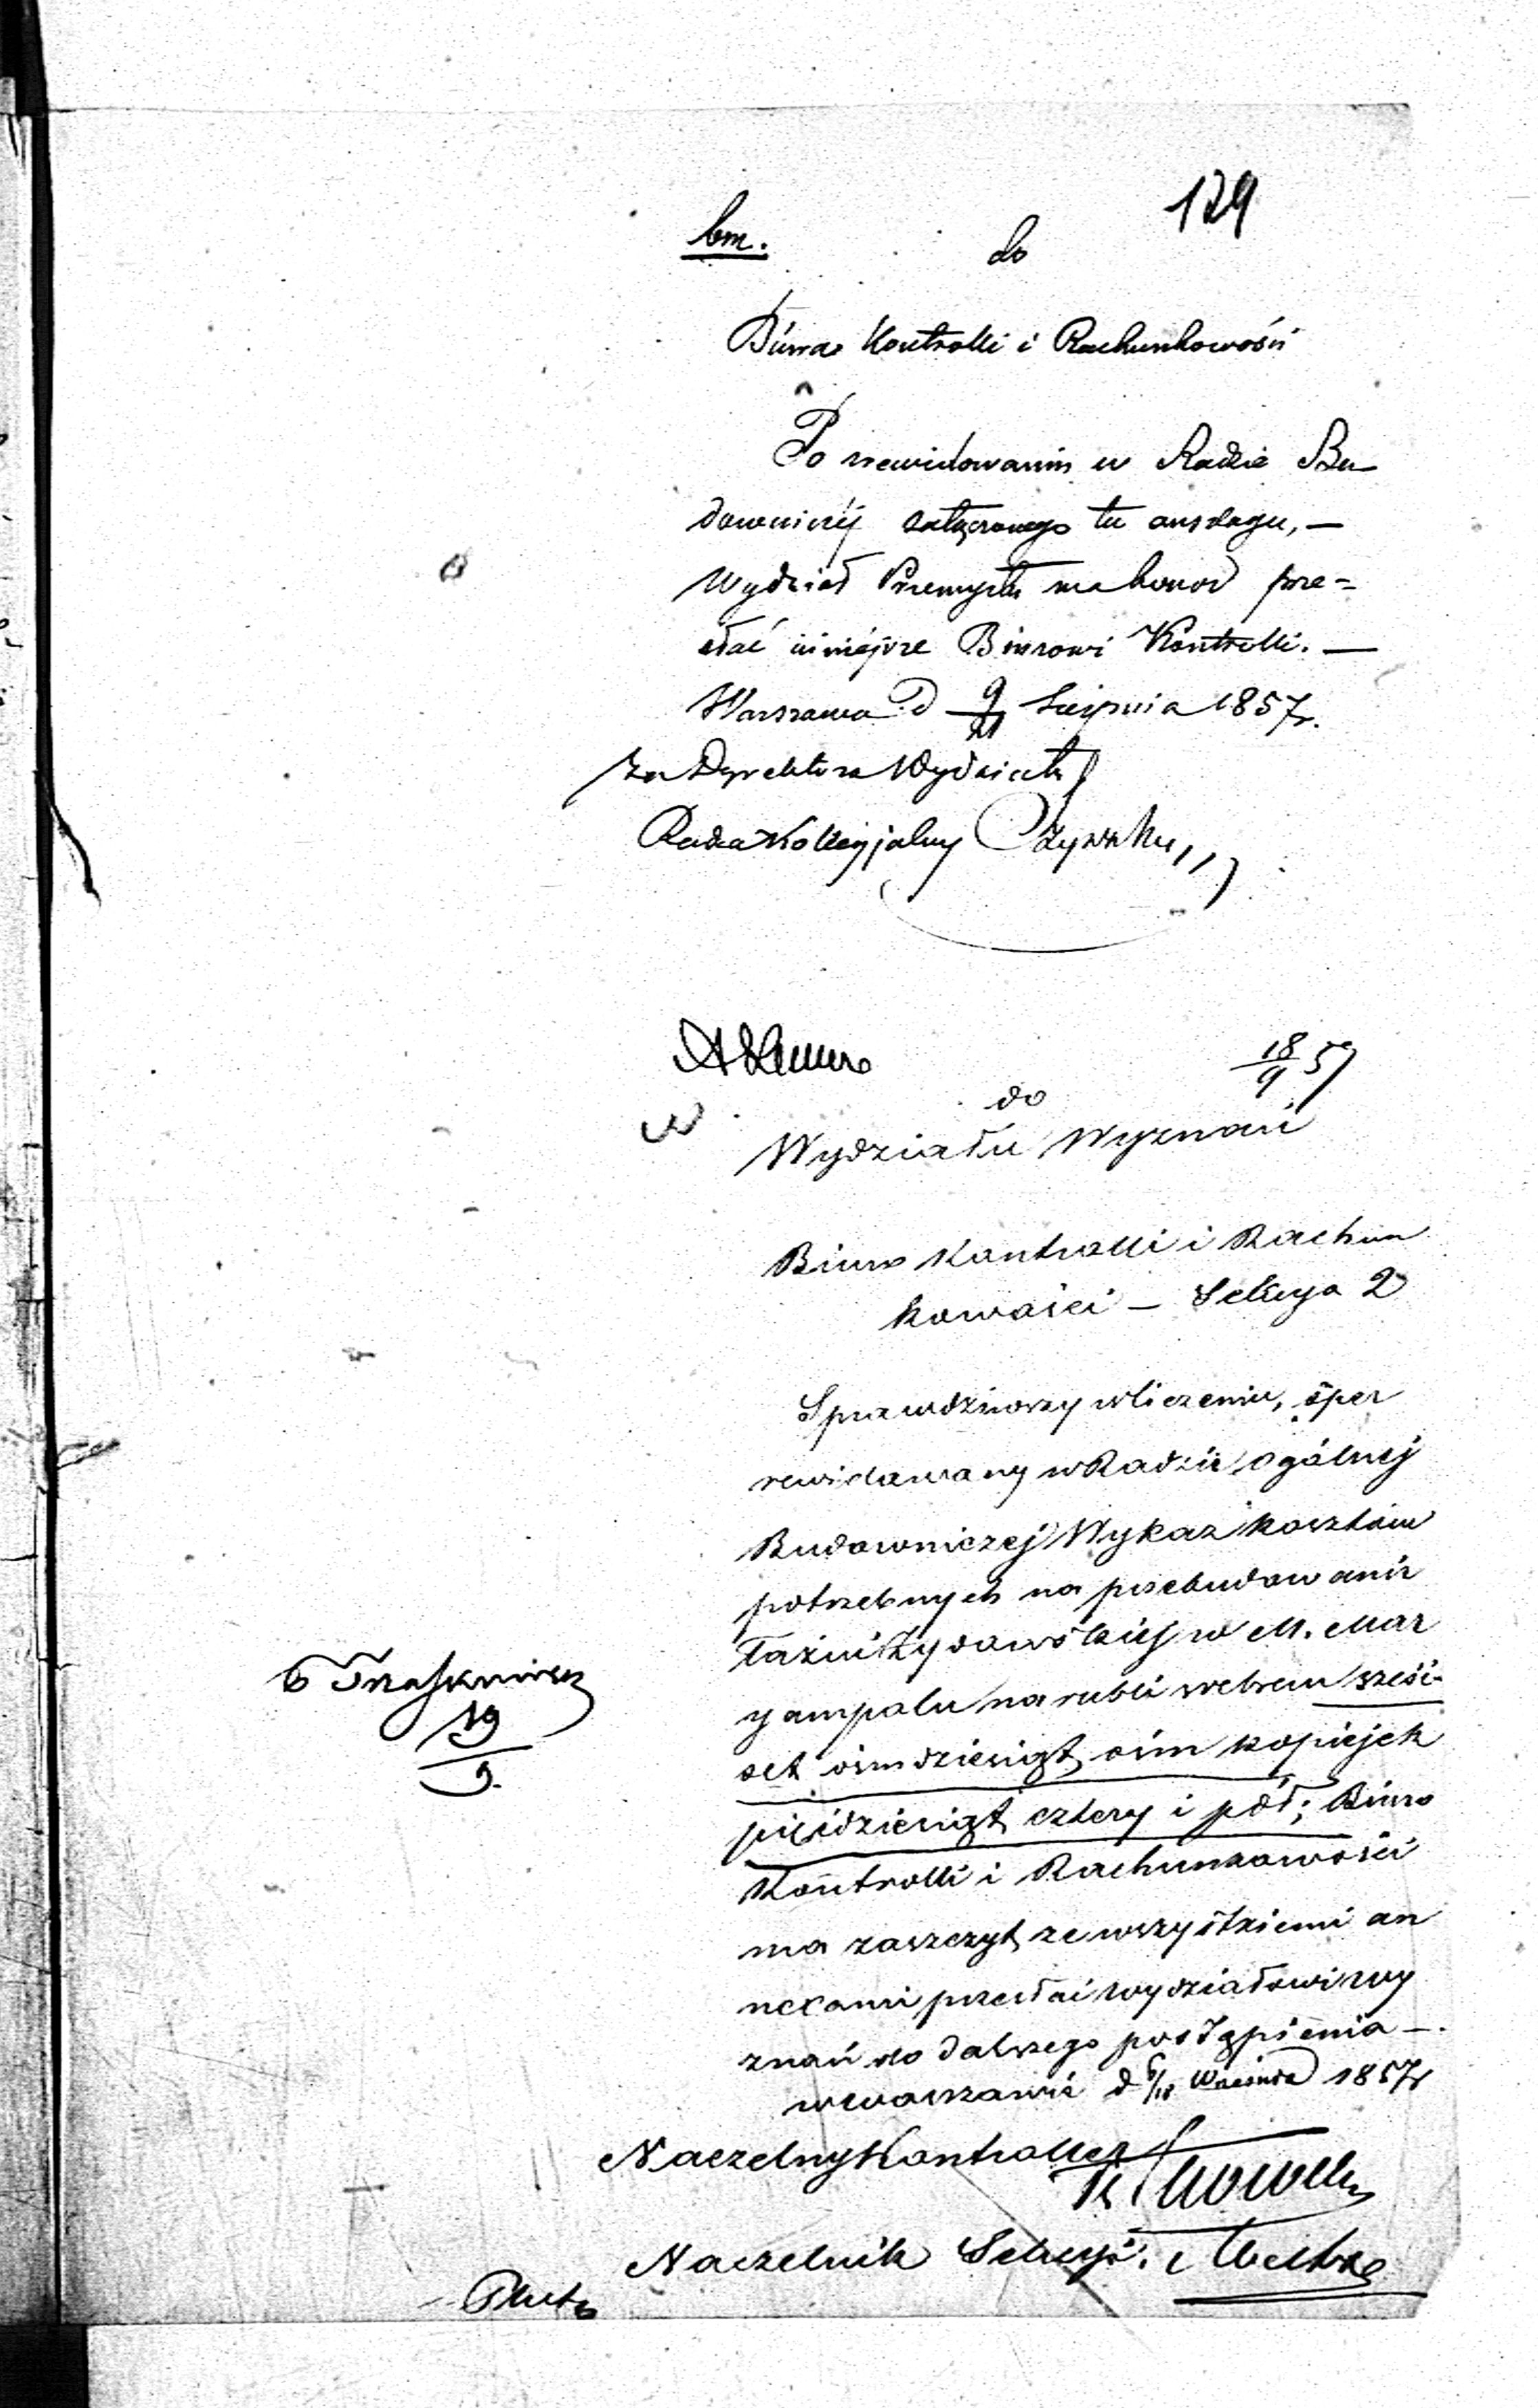 129
bm.
do
Biura Kontrolli i Rachunkowości
Po rewidowaniu w Radzie Bu-
downiczéj załączonego tu anszlagu, —
Wydział Przemysłu ma honor prze-
słać niniejsze Biurowi Kontrolli. —
Warszawa d 9/21 Sierpnia 1857 r.
za Dyrektora Wydziału
Radca Kollegjalny
18/9 57
do
Wydziału Wyznań
Biuro Kontrolli i Rachun
kowości — Sekcya 2
Sprawdziwszy w liczeniu, super
rewidowany w Radzie ogólnej
Budowniczej Wykaz kosztów
potrzebnych na przebudowanie
Łaźni Żydowskiej w M. Mar
yampolu na rubli srebrem sześć-
set ośmdziesiąt ośm kopiejek
pięćdziesiąt cztery i pół; Biuro
Kontrolli i Rachunkowości
ma zaszczyt ze wszystkiemi an
nexami przesłać wydziałowi wy
znań do dalszego postąpienia —.
w Warszawie d 6/18 Września 1857 r
Naczelny Kontroller
19/9.
Naczelnik Sekcyi.